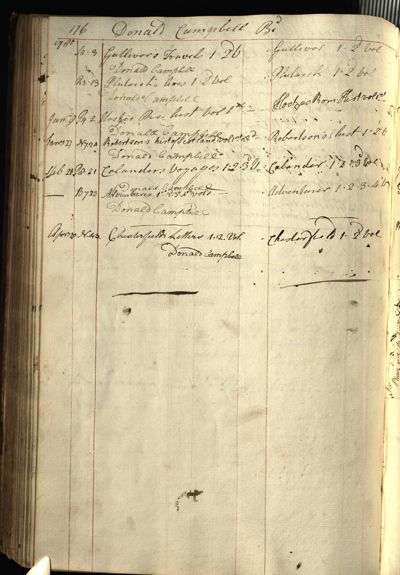 176 Donald Campbell Bd
So-3 Gulliver's Travels 1-2d Gulliver 1-2d Vol
Donald Campbell
R2-13 Plutarch's lives 1 2d Vol Plutarch 1-2d Vol
Donald Campbell
Hook's Rom. hist vol 1st Hooke's Rom Hist vol 1st
Donald Campbell
Robertson's hist of Scotland vol 1st 2d Robertson's hist 1-2d
Donald Campbell
Feb 21 Calanders voyages 1 2 3d v. Calander 1-2-3d Vol
Donald Campbell
Adventurer 1-2-3-4 vols Adventurer 1-2-3-4th
Donald Campbell
Chesterfield's Letters 1-2 Vol. Chesterfield 1-2d Vol
Donald Campbell